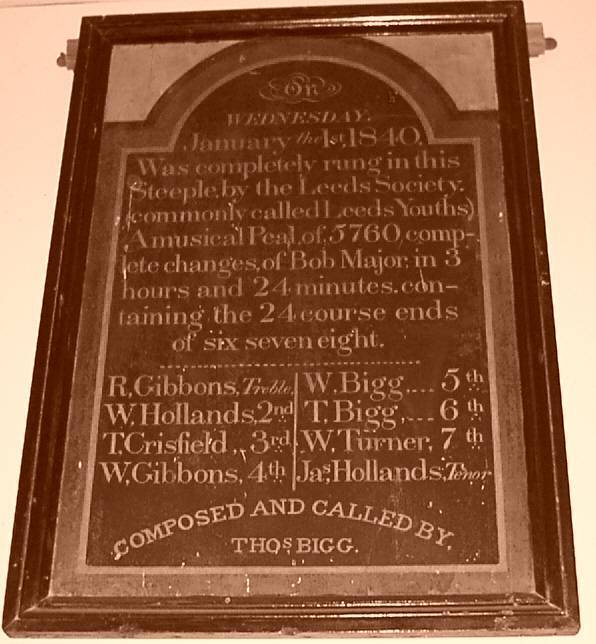 On
WEDNESDAY.
January the 1st, 1840.
Was completely rung in this
Steeple, by the Leeds Society.
(commonly called Leeds Youths)
A musical Peal, of, 5760, comp-
lete changes, of Bob Major, in 3
hours and 24 minutes. con-
taining the 24 course ends
of six seven eight.
R, Gibbons, Treble, W. Bigg.... 5th
W. Hollands, 2nd T, Bigg,... 6th
T. Crisfield,, 3rd W, Turner, 7th
W, Gibbons, 4th Jas Hollands, Tenor
COMPOSED AND CALLED BY.
THOS BIGG.